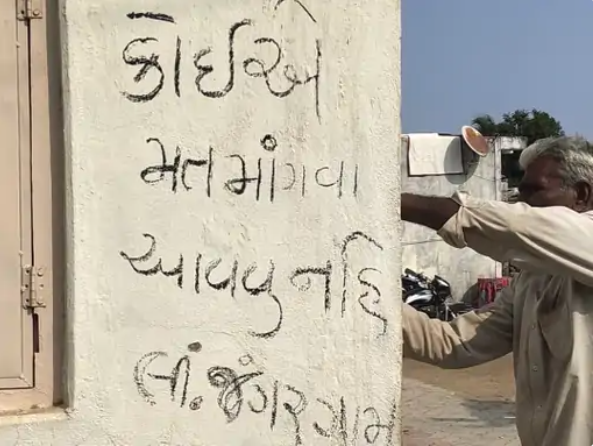 કોઈએ
મત માંગવા
આવવુ નહિ
લી. જંગર ગામ